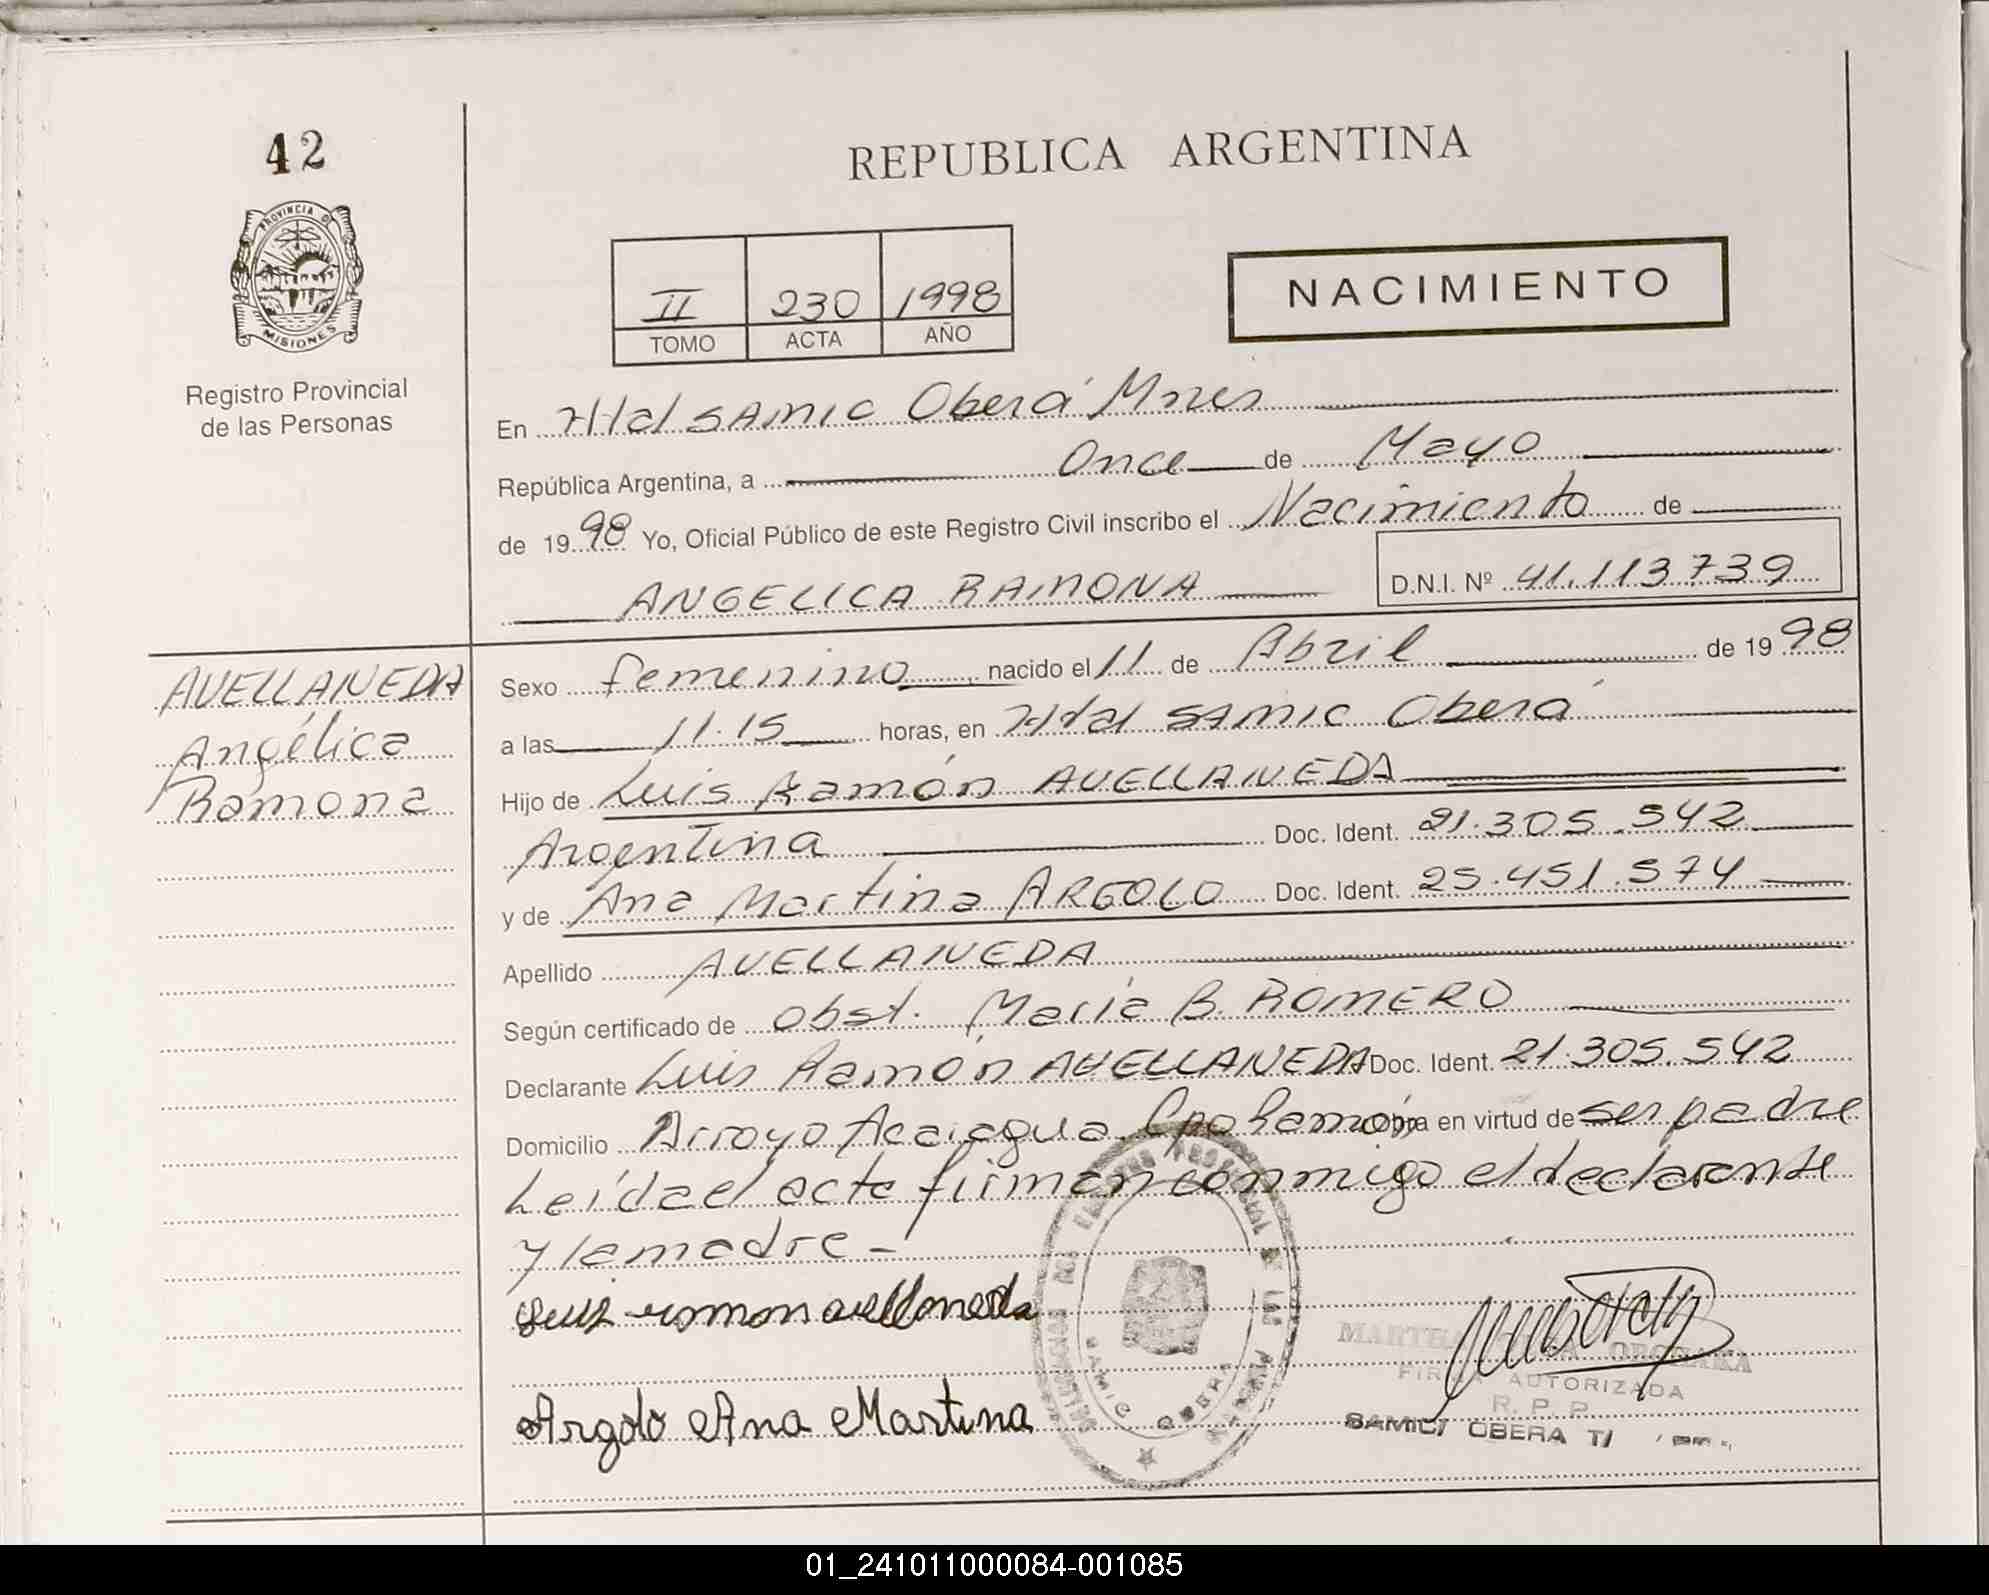 42
REPUBLICA ARGENTINA
PROVINCIA D
MISIONES
Registro Provincial
de las Personas
II 230 1998
TOMO ACTA AÑO
NACIMIENTO
En Htal SAMIC Oberá Mnes
República Argentina, a Once de Mayo
de 1998 Yo, Oficial Público de este Registro Civil inscribo el Nacimiento de
ANGELICA RAMONA D.N.I. Nº 41.113.739
AVELLANEDA
Angélica
Ramona
Sexo femenino, nacido el 11 de Abril de 1998
a las 11.15 horas, en Htal SAMIC Oberá
Hijo de Luis Ramón AVELLANEDA
Argentina Doc. Ident. 21.305.542
y de Ana Martina ARGOLO Doc. Ident. 25.451.574
Apellido AVELLANEDA
Según certificado de obst. María B. ROMERO
Declarante Luis Ramón AVELLANEDA Doc. Ident. 21.305.542
Domicilio Arroyo Acaragua Cpo Ramón obra en virtud de ser padre
Leída el acta firman conmigo el declarante
y la madre -
Luis ramon avellaneda
Argolo Ana Martina
SAMIC OBERA
MARTHA
FIRMA AUTORIZADA
R. P. P.
SAMIC/ OBERA
01_241011000084-001085